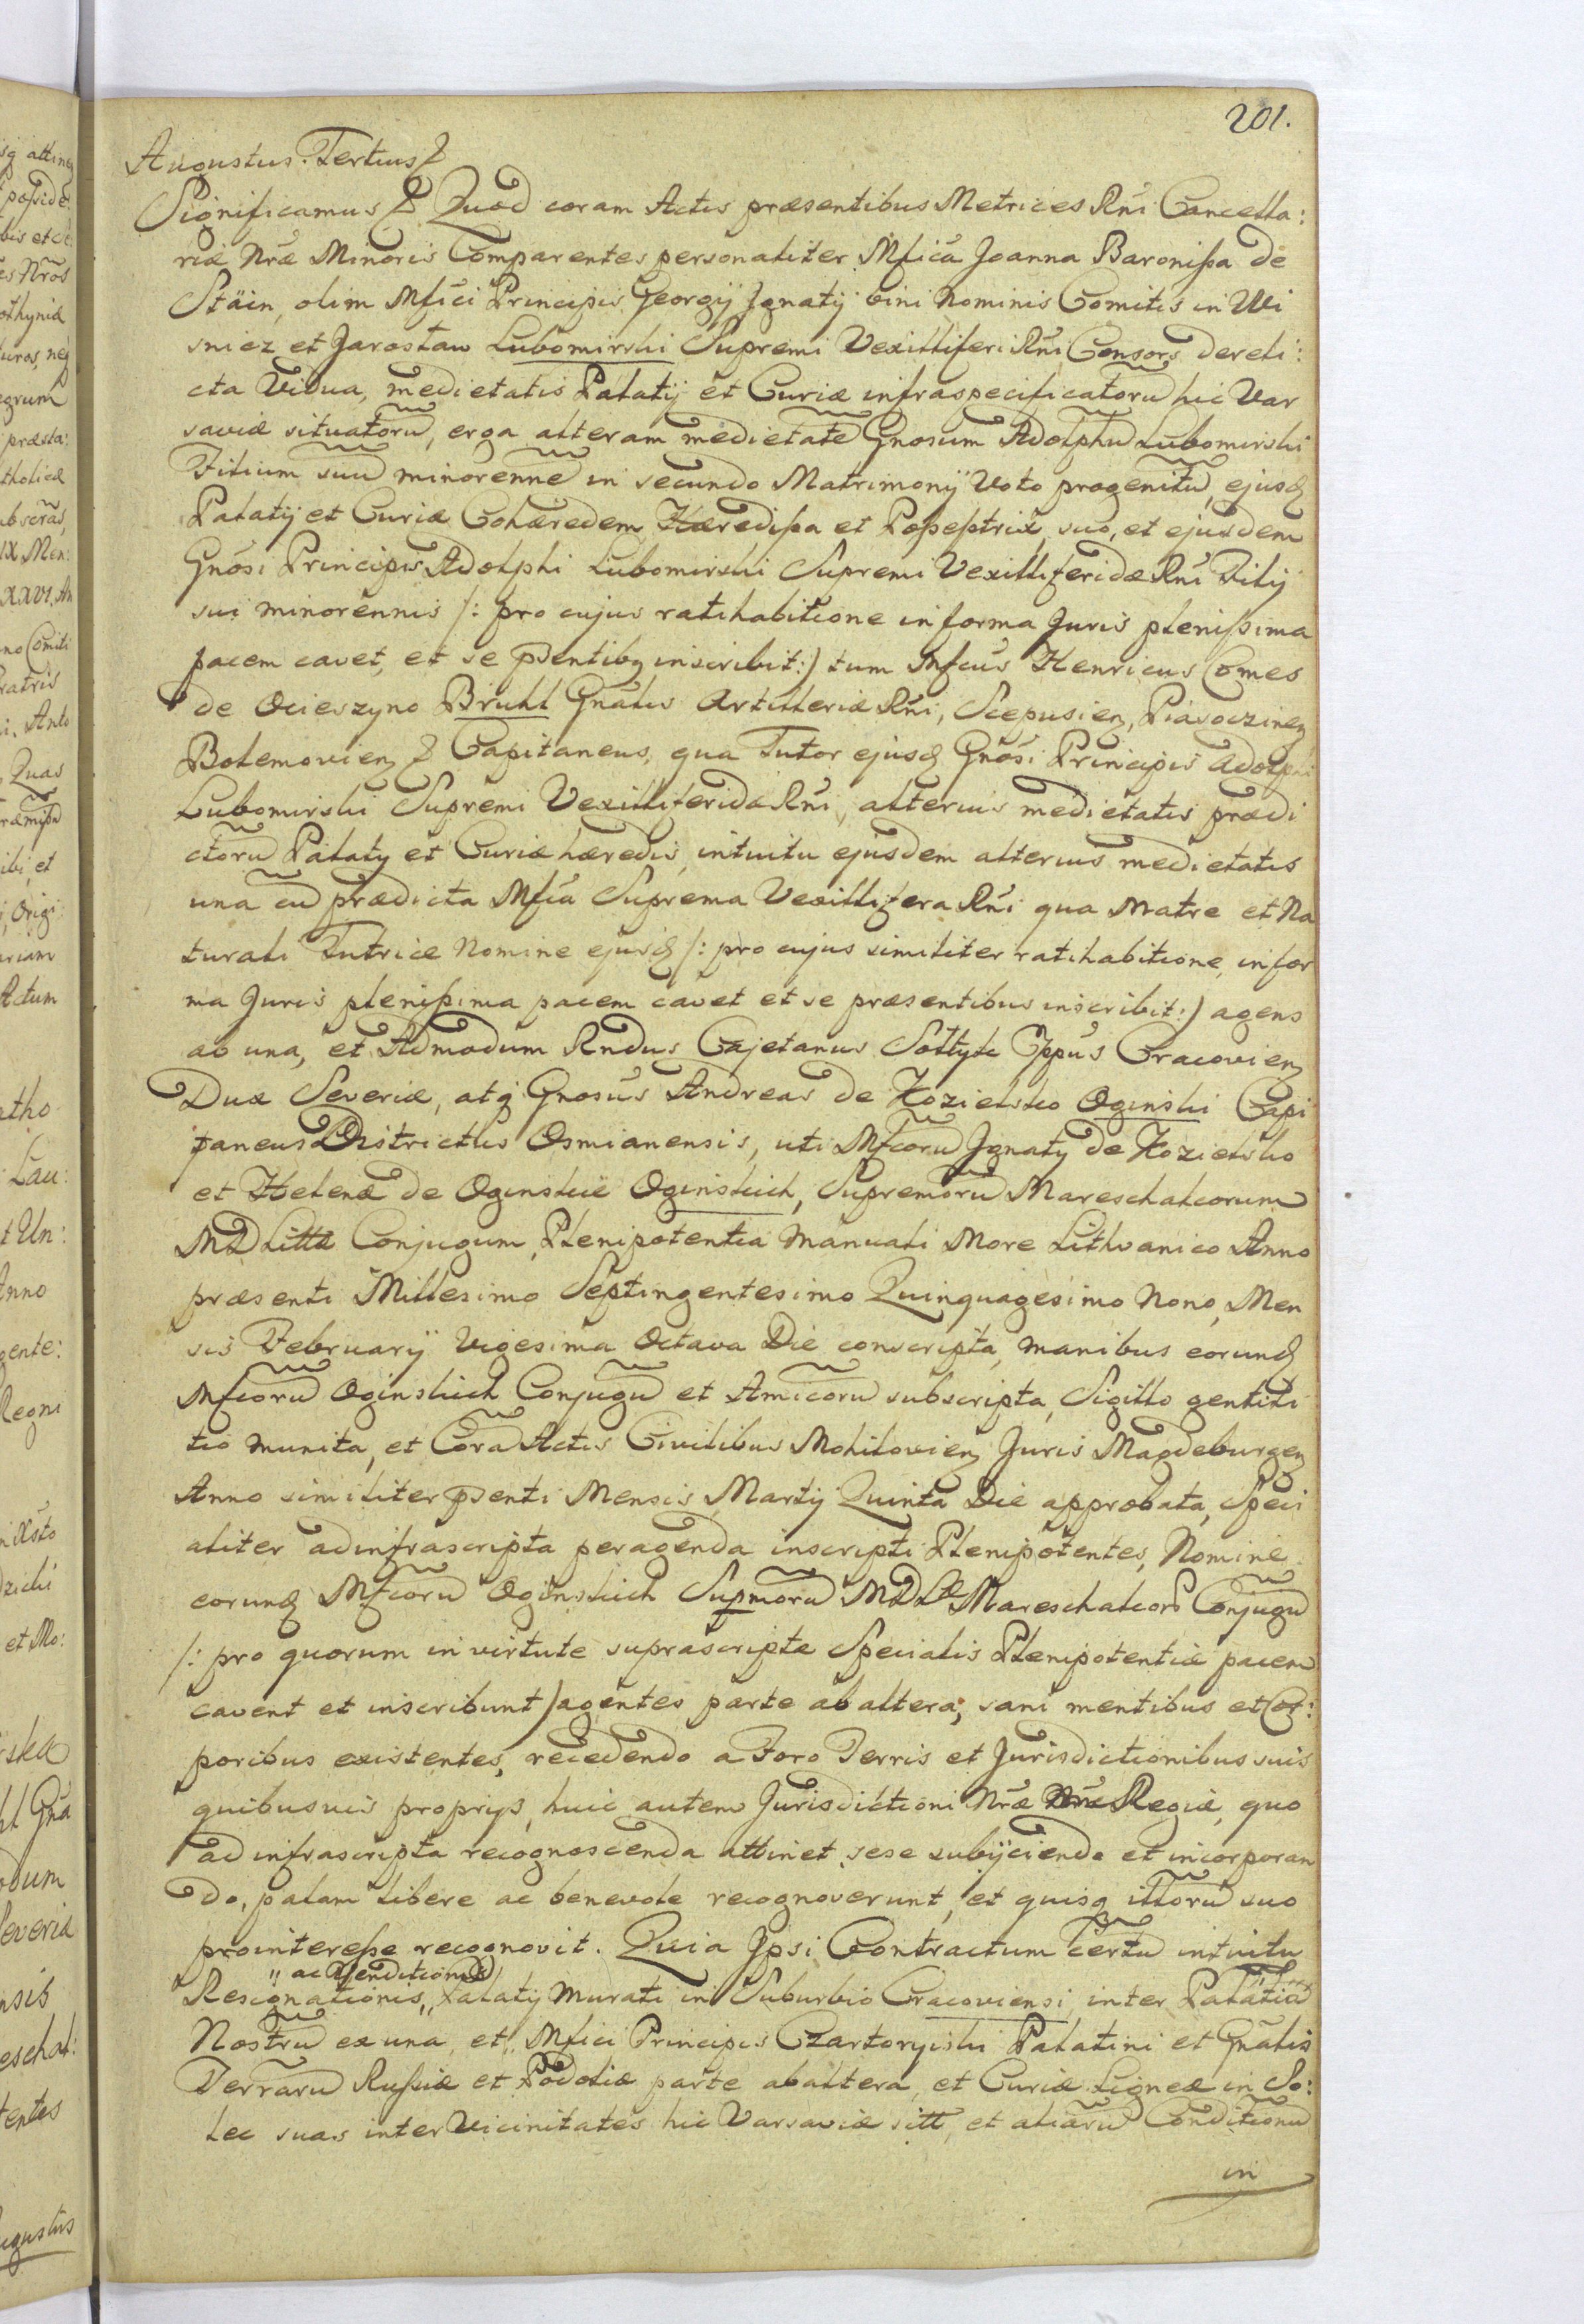 201.
Augustus Tertius &
Significamus & Quod coram Actis præsentibus Metrices Rñi Cancella:
riæ Nræ Minoris Comparentes personaliter Mfica Joanna Baronissa de
Stäin, olim Mfici Principis Georgÿ Jgnatÿ bini Nominis Comitis in Wi
snicz et Jarosław Lubomirski Supremi Vexilliferi Rñi Consors dereli:
cta Vidua, medietatis Palatÿ et Curiæ infraspecificatorũ hic Var
saviæ situatorũ, erga alteram medietatẽ Gnosum Adolphũ Lubomirski
Filium suũ minorennẽ in secundo Matrimonÿ Voto progenitũ, ejusq
Palatÿ et Curiæ Cohæredem, Hæredissa et Possesstrix, suo, et ejusdem
Gnosi Principis Adolphi Lubomirski Supremi Vexilliferidæ Rñi Filÿ
sui minorennis /: pro cujus ratihabitione in forma Juris plenissima
pacem cavet, et se pbsentibq inscribit :) tum Mfcus Henricus Comes
de Ocieszyno Bruhl Gnalis Artilleriæ Rñi, Scepusienq, Piasoczinenq
Bolemovienq & Capitaneus, qua Tutor ejusq Gnosi Principis Adolphi
Lubomirski Supremi Vexilliferidæ Rñi, alterius medietatis prædi
ctorũ Palatÿ et Curiæ hæredis, intuitu ejusdem alterius medietatis
una cũ prædicta Mfca Suprema Vexillifera Rñi qua Matre et Na
turali Tutrice Nomine ejusq /: pro cujus similiter ratihabitione, in for
ma Juris plenissima pacem cavet et se præsentibus inscribit :) agens
ab una, et Admodum Rndus Cajetanus Sołtyk Eppus Cracovienq
Dux Severiæ, atq Gnosus Andreas de Kozielsko Oginski Capi
taneus Districtus Osmianensis, uti Mfcorũ Jgnatÿ de Kozielsko
et Helenæ de Oginskie Oginskich, Supremorũ Mareschalcorum
MD Littæ Conjugum Plenipotentia Manuali More Lithvanico Anno
præsenti Millesimo Septingentesimo Quinquagesimo Nono, Men
sis Februarÿ Vigesima Octava Die conscripta, manibus eorunq
Mfcorũ Oginskich Conjugũ et Amicorũ subscripta, Sigillo gentili
tio munita, et Corã Actis Civilibus Mohilovienq Juris Magdeburgenq
Anno similiter psenti Mensis Martÿ Quinta Die approbata, Speci
aliter ad infrascripta peragenda inscripti Plenipotentes, Nomine
eorunq Mfcorũ Oginskich Supmorũ MDL Mareschalcorũ Conjugũ
/: pro quorum in virtute suprascriptæ Specialis Plenipotentiæ pacem
cavent et inscribunt) agentes parte ab altera, sani mentibus et Cor:
poribus existentes, recedendo a Foro Terris et Jurisdictionibus suis
quibusvis proprÿs, huic autem Jurisdictioni Nræ Regiæ, quo
ad infrascripta recognoscenda attinet sese subÿciendo et incorporan
do, palam libere ac benevole recognoverunt, et quisq illorũ suo
prointeresse recognovit. Quia Jpsi Contractum certũ intuitu
" ac Venditionis
Resignationis, " Palatÿ Murati in Suburbio Cracoviensi inter Palatiũ
Nostrũ ex una, et Mfici Principis Czartoryiski Palatini et Gnalis
Terrarũ Russiæ et Podoliæ parte ab altera, et Curiæ Ligneæ in So:
lec suas inter Vicinitates hic Varsaviæ sitt, et aliarũ Conditionũ
in